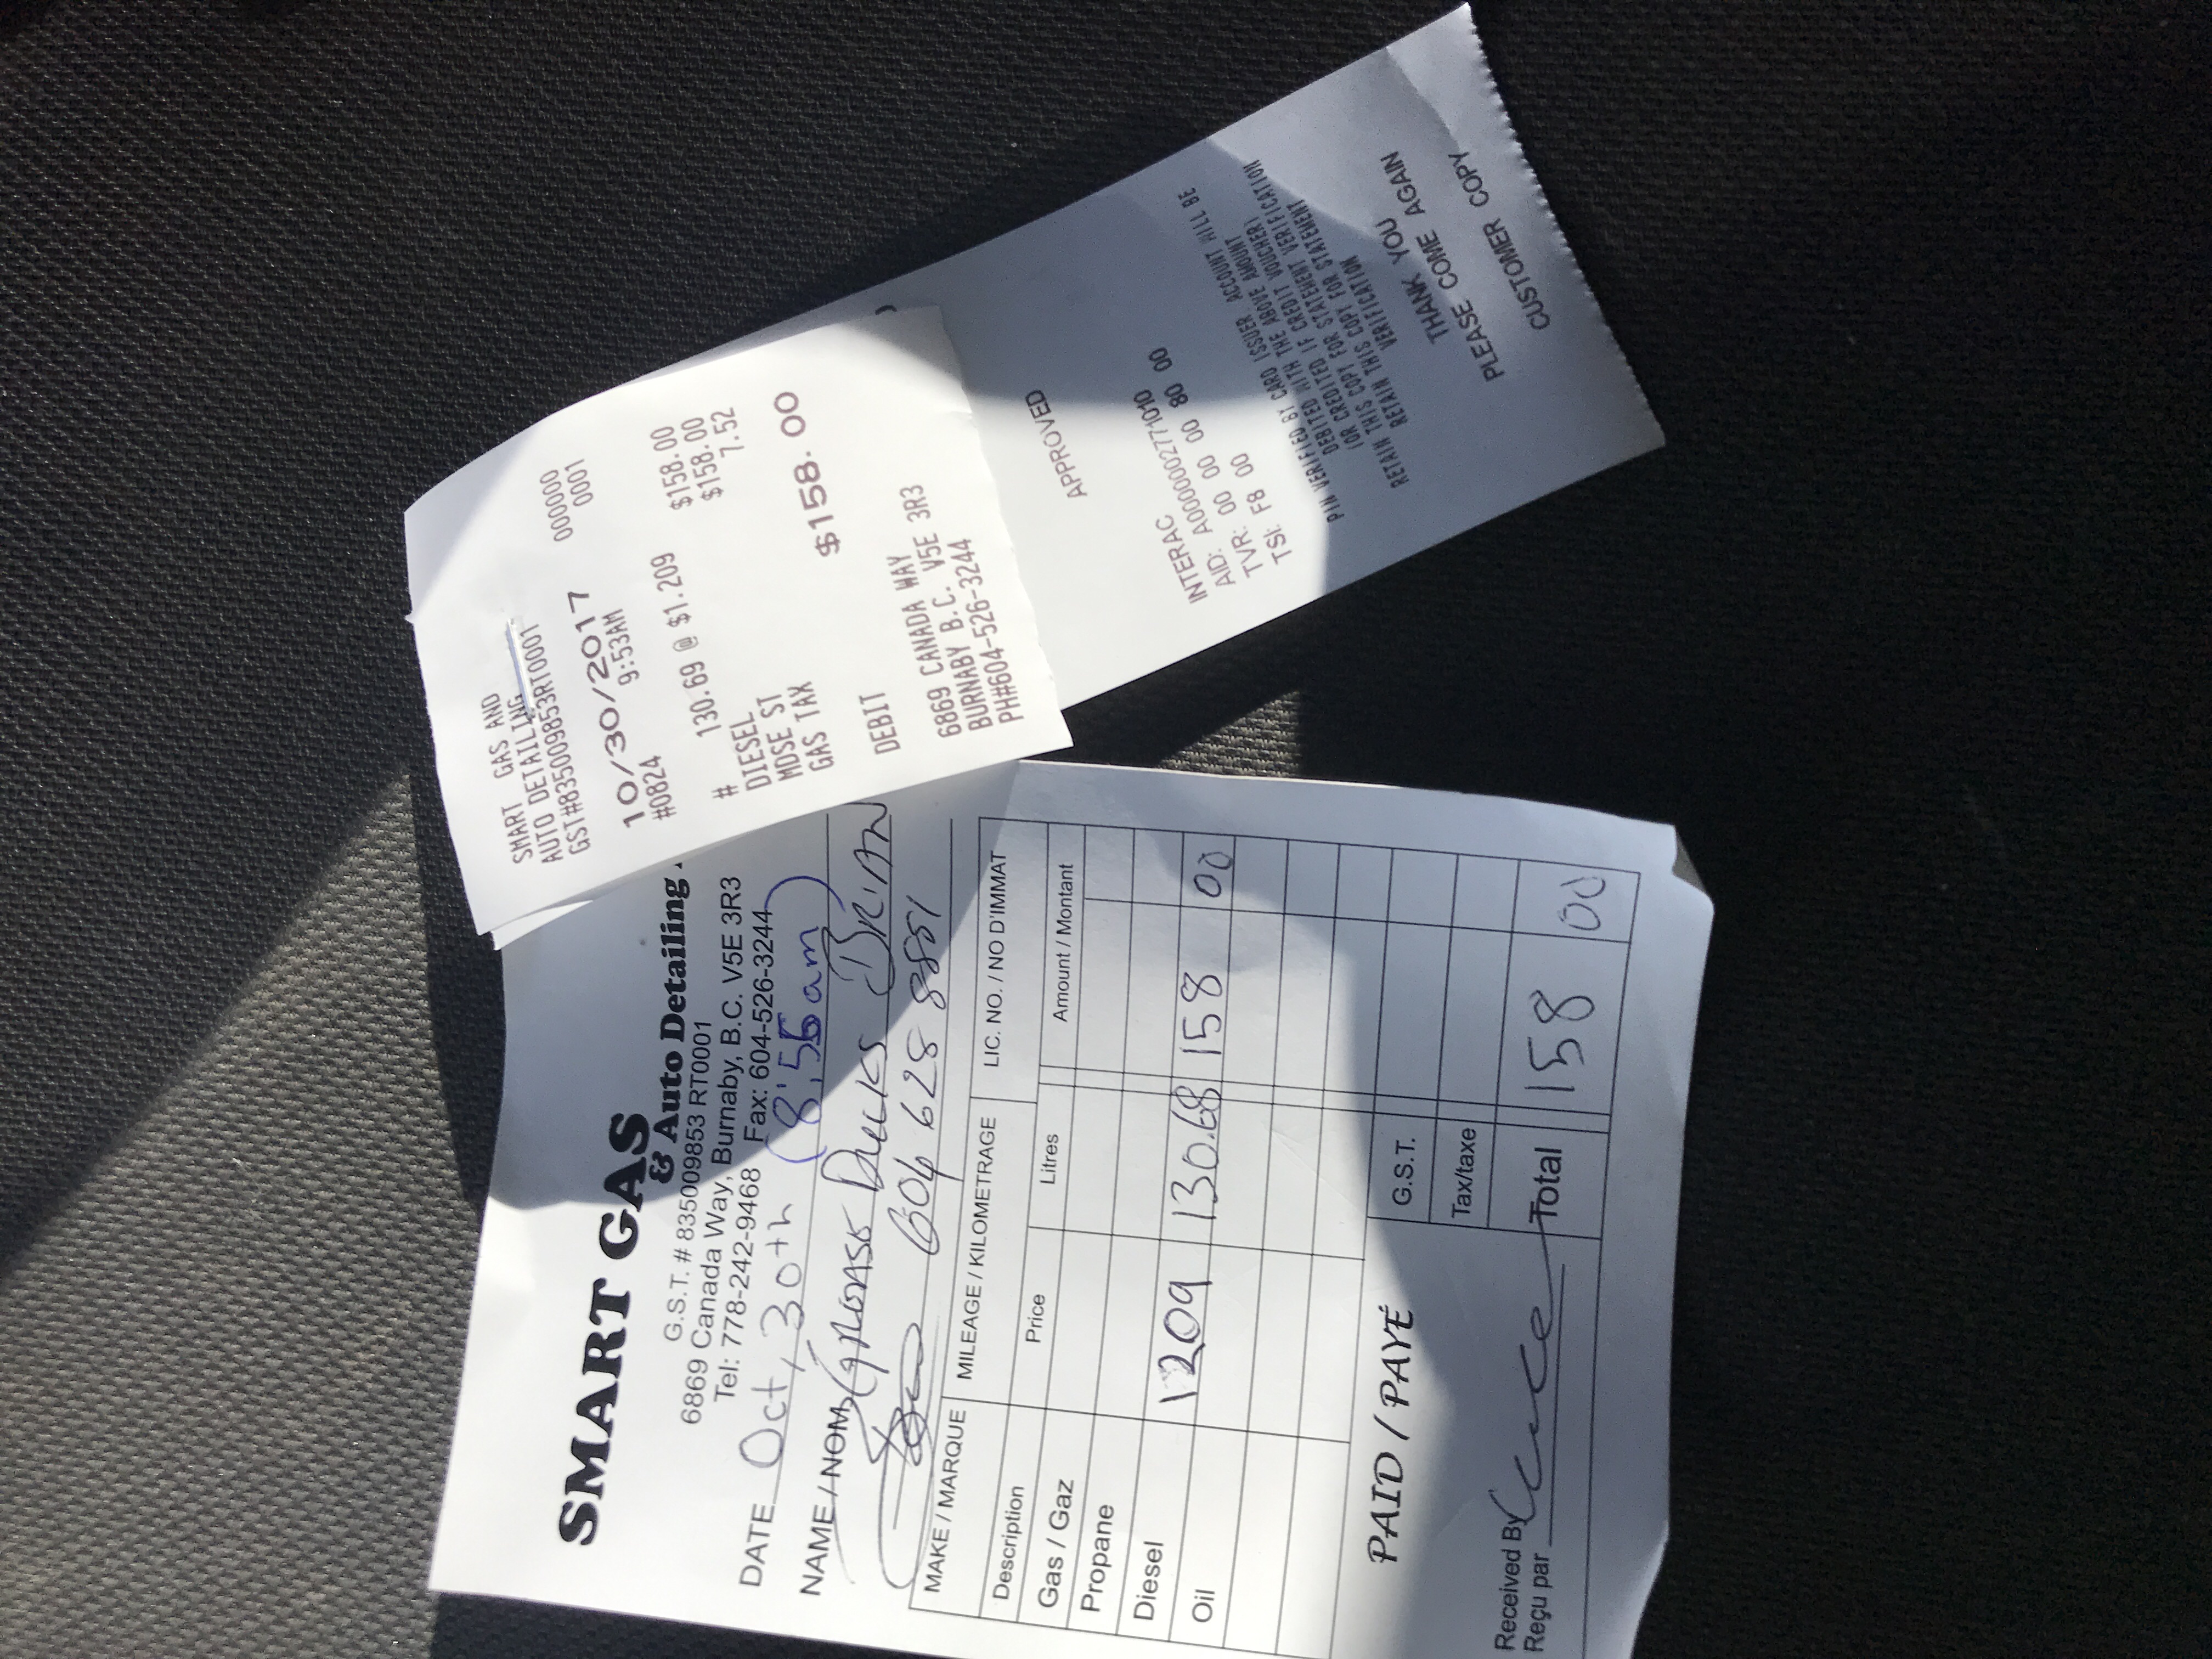 SMART GAS
& Auto Detailing
G.S.T. # 835009853 RT0001
6869 Canada Way, Burnaby, B.C. V5E 3R3
Tel: 778-242-9468 Fax: 604-526-3244
DATE Oct, 30th (8:56am)
NAME / NOM Grease Ducks BRIAN
604 628 8881
MAKE / MARQUE MILEAGE / KILOMETRAGE LIC. NO. / NO D'IMMAT
Description Price Litres Amount / Montant
Gas / Gaz
Propane
Diesel 1209 130.68 158 00
Oil
PAID / PAYÉ
G.S.T.
Tax/taxe
Received By
Reçu par
Total 158 00
SMART GAS AND
AUTO DETAILING
GST#835009853RT0001
10/30/2017 000000
#0824 9:53AM 0001
# 130.69 @ $1.209
DIESEL $158.00
MDSE ST $158.00
GAS TAX 7.52
DEBIT $158.00
6869 CANADA WAY
BURNABY B.C. V5E 3R3
PH#604-526-3244
APPROVED
INTERAC
AID: A0000002771010
TVR: 00 00 00 80 00
TSI: F8 00
PIN VERIFIED BY CARD ISSUER ACCOUNT WILL BE
DEBITED WITH THE ABOVE AMOUNT
(OR CREDITED IF CREDIT VOUCHER)
RETAIN THIS COPY FOR STATEMENT VERIFICATION
RETAIN THIS COPY FOR STATEMENT
VERIFICATION
THANK YOU
PLEASE COME AGAIN
CUSTOMER COPY